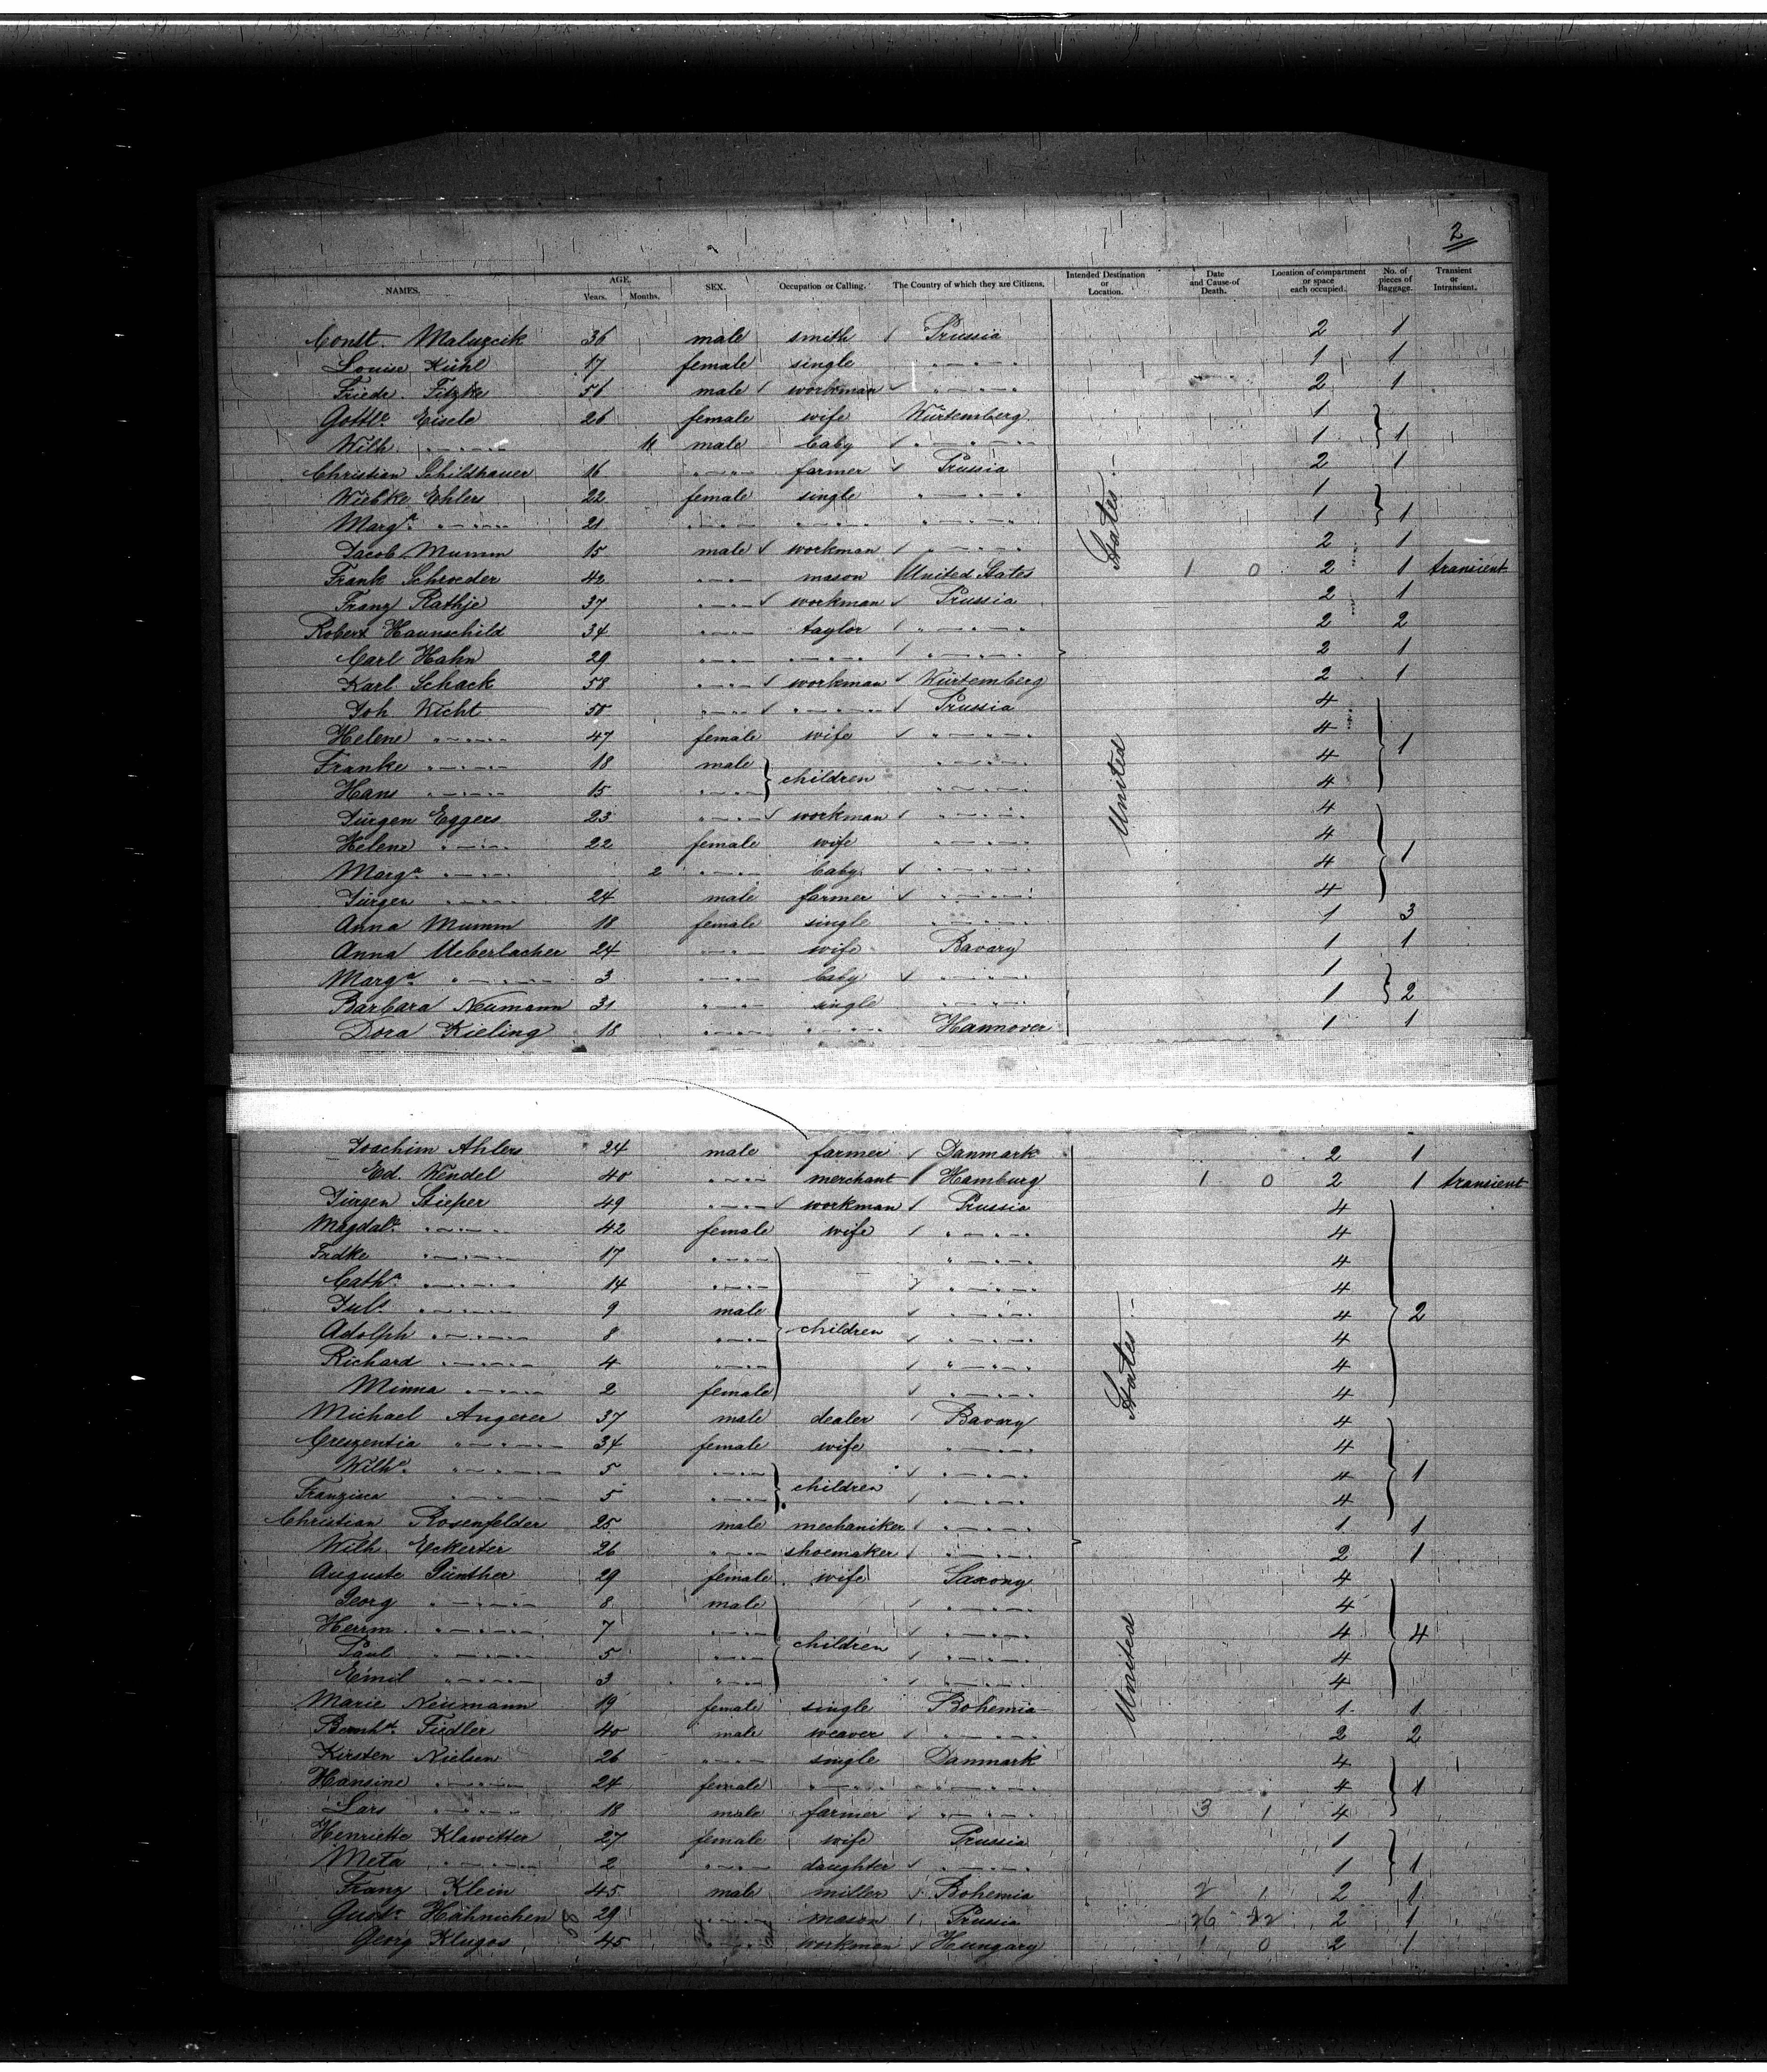 2
NAMES. AGE. Years. Months. SEX. Occupation or Calling. The Country of which they are Citizens. Intended Destination or Location. Date and Cause of Death. Location of compartment or space each occupied. No. of pieces of Baggage. Transient or Intransient.
Const. Maluzcik 36 male smith Prussia 2 1
Louise Kühl 17 female single " 1 1
Friedr. Fitzke 56 male workman " 2 1
Gottle Eisele 26 female wife Würtemberg 1
Wilh. " 11 male baby " 1 1
Christian Schildhauer 16 " farmer Prussia 2 1
Wiebke Ehlers 22 female single " 1
Marga " 21 " " " 1 1
Jacob Mumm 15 male workman " 2 1
Frank Schroeder 42 " mason United States 1 0 2 1 transient
Franz Rathje 37 " workman Prussia 2 1
Robert Haunschild 34 " taylor " 2 2
Carl Hahn 29 " " " 2 1
Karl Schack 58 " workman Würtemberg 2 1
Joh Wicht 50 " " Prussia 4
Helene " 47 female wife " 4 1
Franke " 18 male children " 4
Hans " 15 " " 4
Jürgen Eggers 23 " workman " 4
Helene " 22 female wife " 4 1
Marga " 2 " baby " 4
Jürgen " 24 male farmer " 4
Anna Mumm 18 female single " 1 3
Anna Ueberlacher 24 " wife Bavary 1 1
Marga " 3 " baby " 1
Barbara Neumann 31 " single " 1 2
Dora Kieling 18 " " Hannover 1 1
United States
Joachim Ahlers 24 male farmer Danmark 2 1
Ed. Wendel 40 " merchant Hamburg 1 0 2 1 transient
Jürgen Stieper 49 " workman Prussia 4
Magdale " 42 female wife " 4
" 17 " " 4
Catha " 14 " " 4
Juls " 9 male " 4 2
Adolph " 8 " children " 4
Richard " 4 " " 4
Minna " 2 female " 4
Michael Angerer 37 male dealer Bavary 4
Creszentia " 34 female wife " 4
Wilhe " 5 " children " 4 1
Franzisca " 5 " " 4
Christian Rosenfelder 25 male mechaniker " 1 1
Wilh. Eckerter 26 " shoemaker " 2 1
Auguste Günther 29 female wife Saxony 4
Georg " 8 male " 4
Herrm. " 7 " children " 4 4
Paul " 5 " " 4
Emil " 3 " " 4
Marie Neumann 19 female single Bohemia 1 1
Bernhd. Fiedler 40 male weaver " 2 2
Kirsten Nielsen 26 " single Danmark 4
Hansine " 24 female " " 4 1
Lars " 18 male farmer " 3 1 4
Henriette Klawitter 27 female wife Prussia 1
Meta " 2 " daughter " 1 1
Franz Klein 45 male miller Bohemia 2 1 2 1
Gustv Hähnichen 29 " mason Prussia 26 22 2 1
Georg Kluges 45 " workman Hungary 1 0 2 1
United States